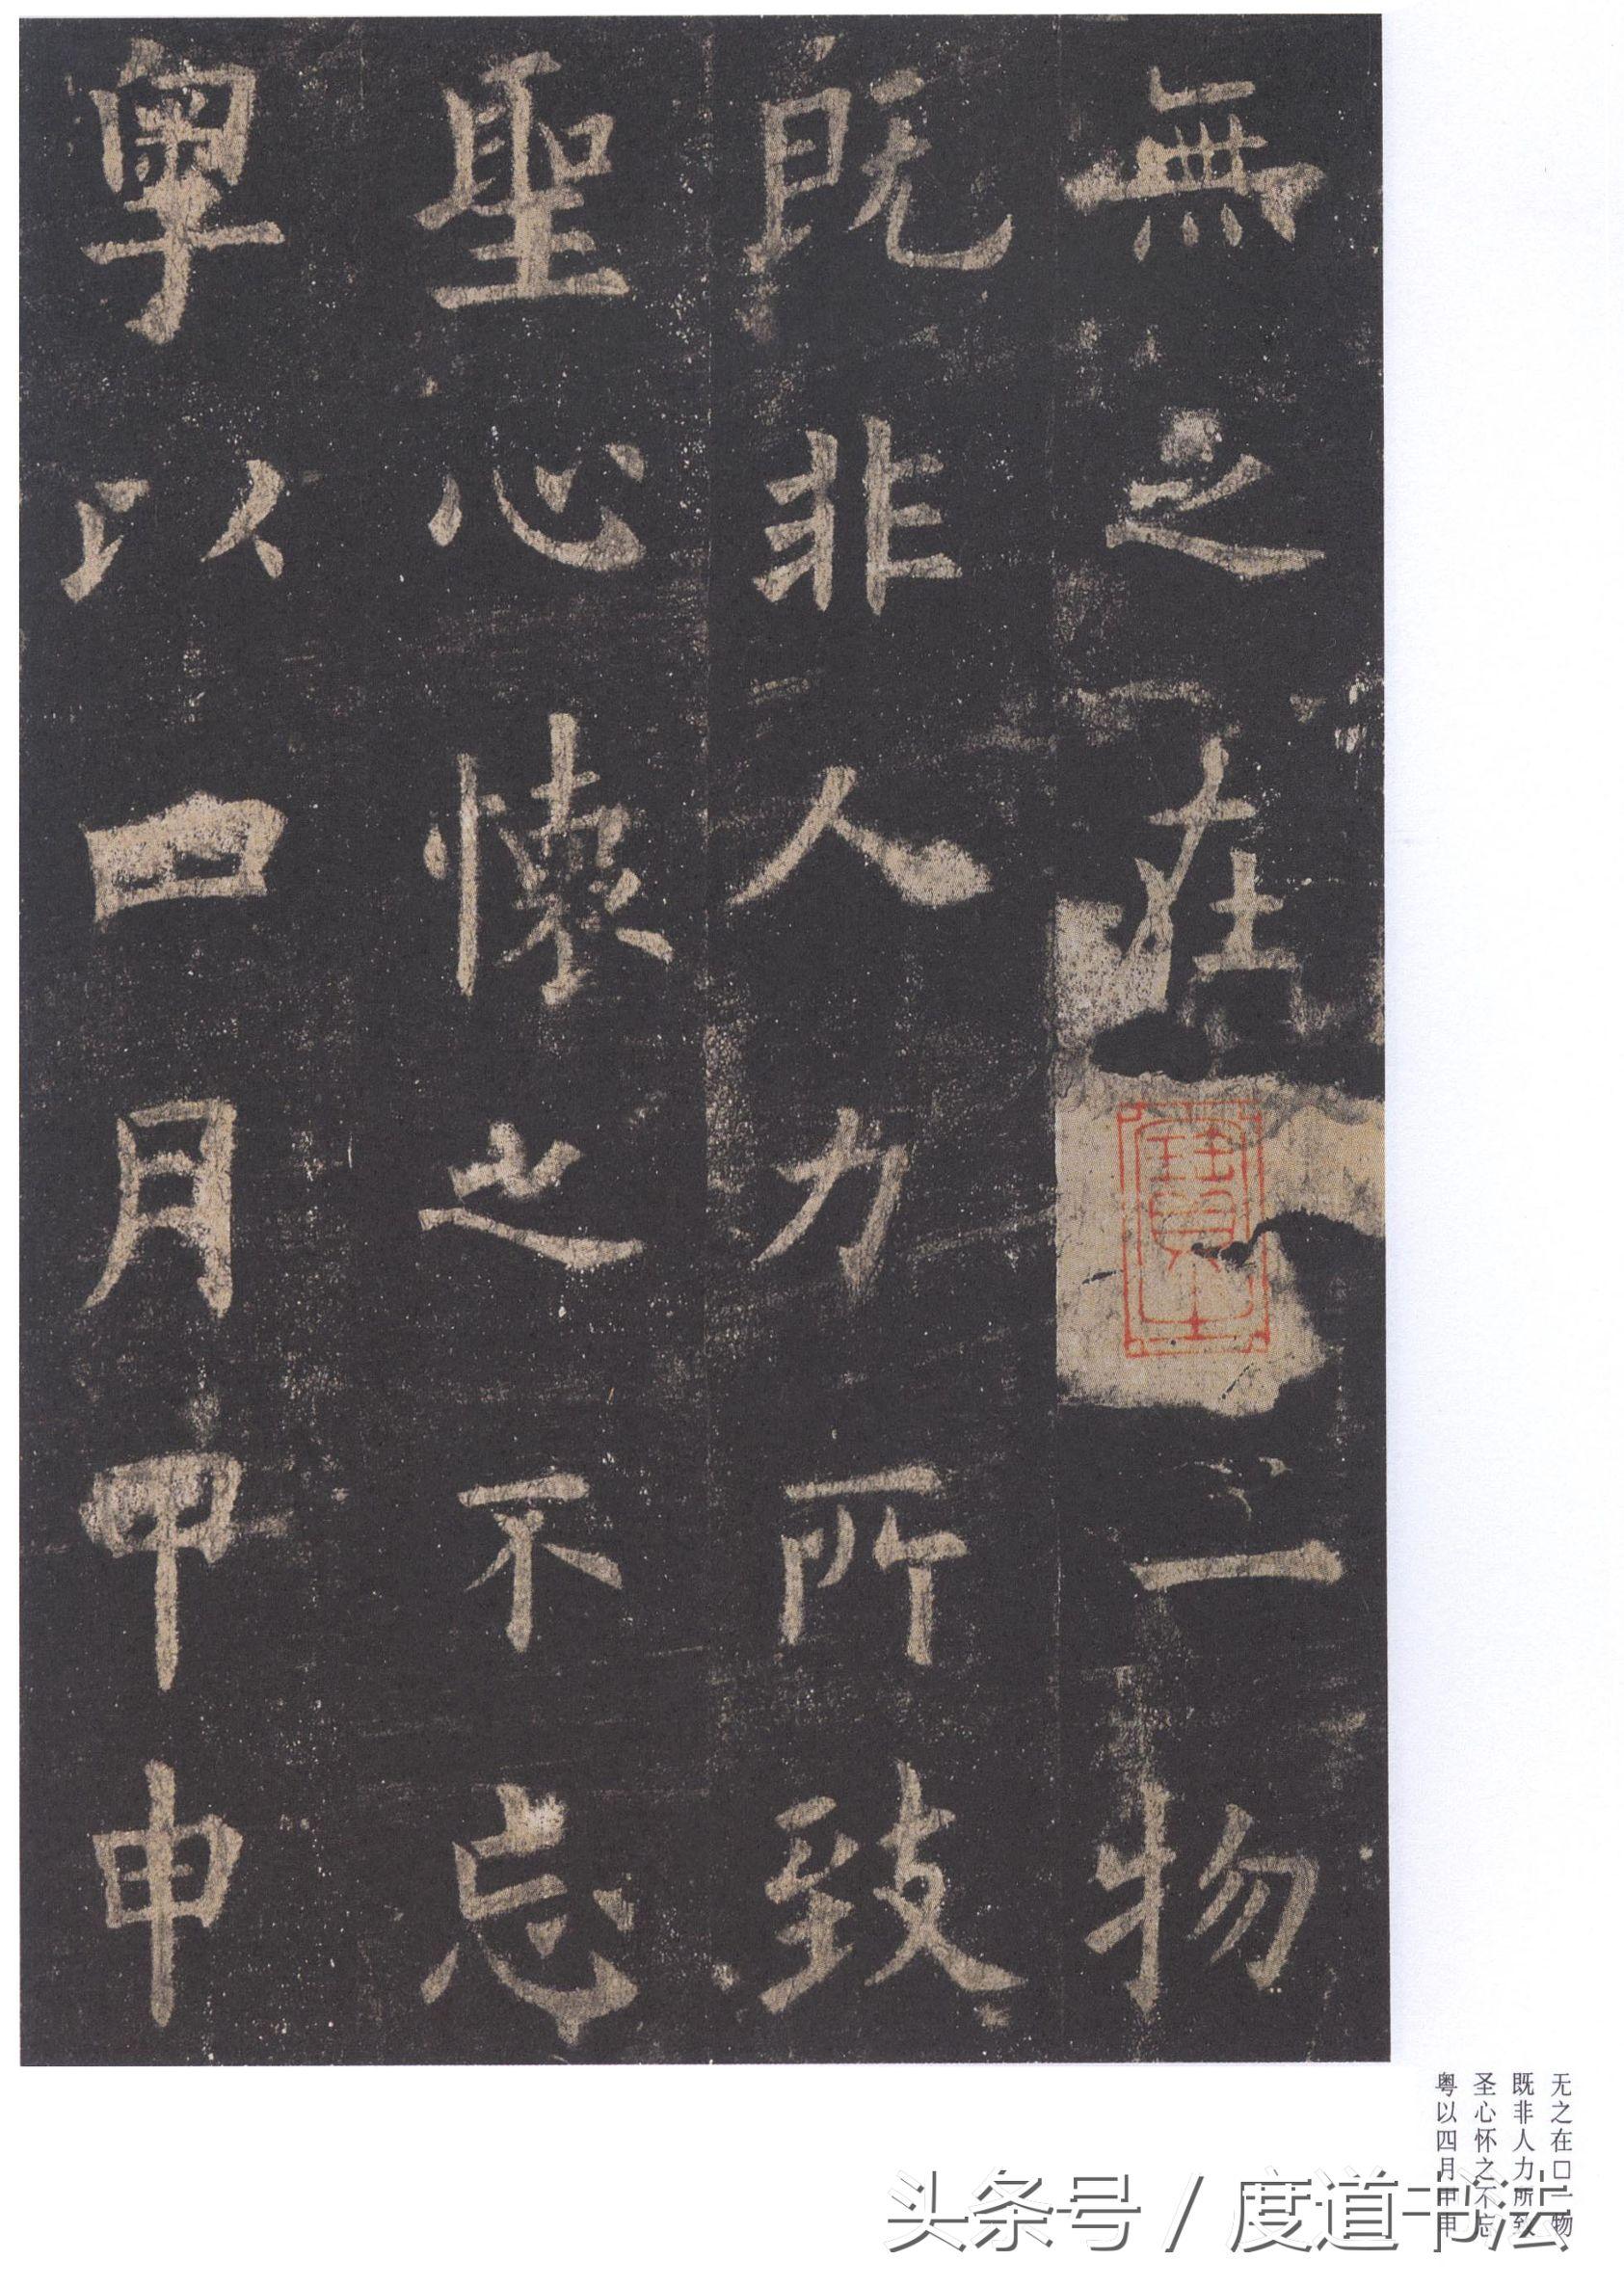 無之在一物
既非人力所致
聖心懷之不忘
粤以四月甲申
无之在□一物
既非人力所致
圣心怀之不忘
粤以四月甲申
头条号 / 度道书法